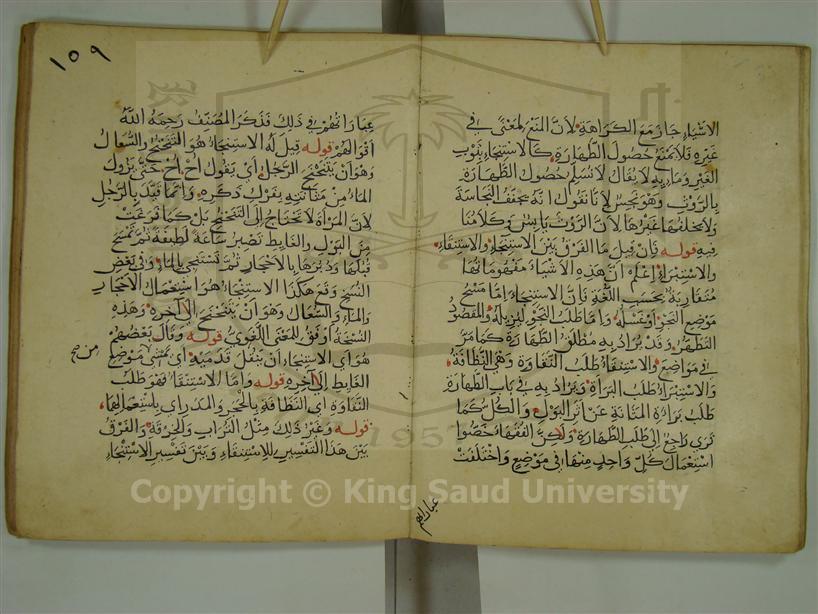 الاشياء جاز مع الكراهة لان المنع لمعنى في
غيره فلا يمنع حصول الطهارة كالاستنجاء بثوب
الغير وماء به لا يقال لا نسلم حصول الطهارة
بالروث وهو نجس لانا نقول انه يجفف النجاسة
ولا يخلفها غيرها لان الروث يابس وكلامنا
فيه قوله فان قيل ما الفرق بين الاستنجاء والاستنقاء
والاستبراء اعلم ان هذه الاشياء مفهوماتها
متقاربة بحسب اللغة فان الاستنجاء اما مسح
موضع النجو او غسله واما طلب النجو ليزيله والمقصود
التطهر وقد يراد به مطلق الطهارة كما مر
في مواضع والاستنقاء طلب النقاوة وهي النظافة
والاستبراء طلب البراة ويراد به في باب الطهارة
طلب براءة المثانة عن اثر البول والكل كما
ترى راجع الى طلب الطهارة ولكن الفقهاء خصوا
استعمال كل واحد منها في موضع واختلفت
عباراتهم
١٥٩
عباراتهم في ذلك فذكر المصنف رحمه الله
اقوالهم قوله قيل له الاستنجاء هو التنحنح والسعال
وهو ان يتنحنح الرجل اي يقول اح اح حتى يزول
الماء من مثانته بفرك ذكره وانما قيد بالرجل
لان المرأة لا تحتاج الى التنحنح بل كما فرغت
من البول والغايط تصبر ساعة لطيفة ثم تمسح
قبلها ودبرها بالاحجار ثم تستنجي بالماء وفي بعض
النسخ وقع هكذا الاستنجاء هو استعمال الاحجار
والماء والسعال وهو ان يتنحنح الى آخره وهذه
النسخة اوفق للمعنى اللغوي قوله وقال بعضهم
هو اي الاستنجاء ان ينقل قدميه اي يمشي موضع
من صح
الغايط الى آخره قوله واما الاستنقاء فهو طلب
النقاوة اي النظافة بالحجر والمدر اي باستعمالهما
قوله وغير ذلك مثل التراب والخرقة والفرق
بين هذا التفسير للاستنقاء وبين تفسير الاستنجاء
Copyright © King Saud University
1957